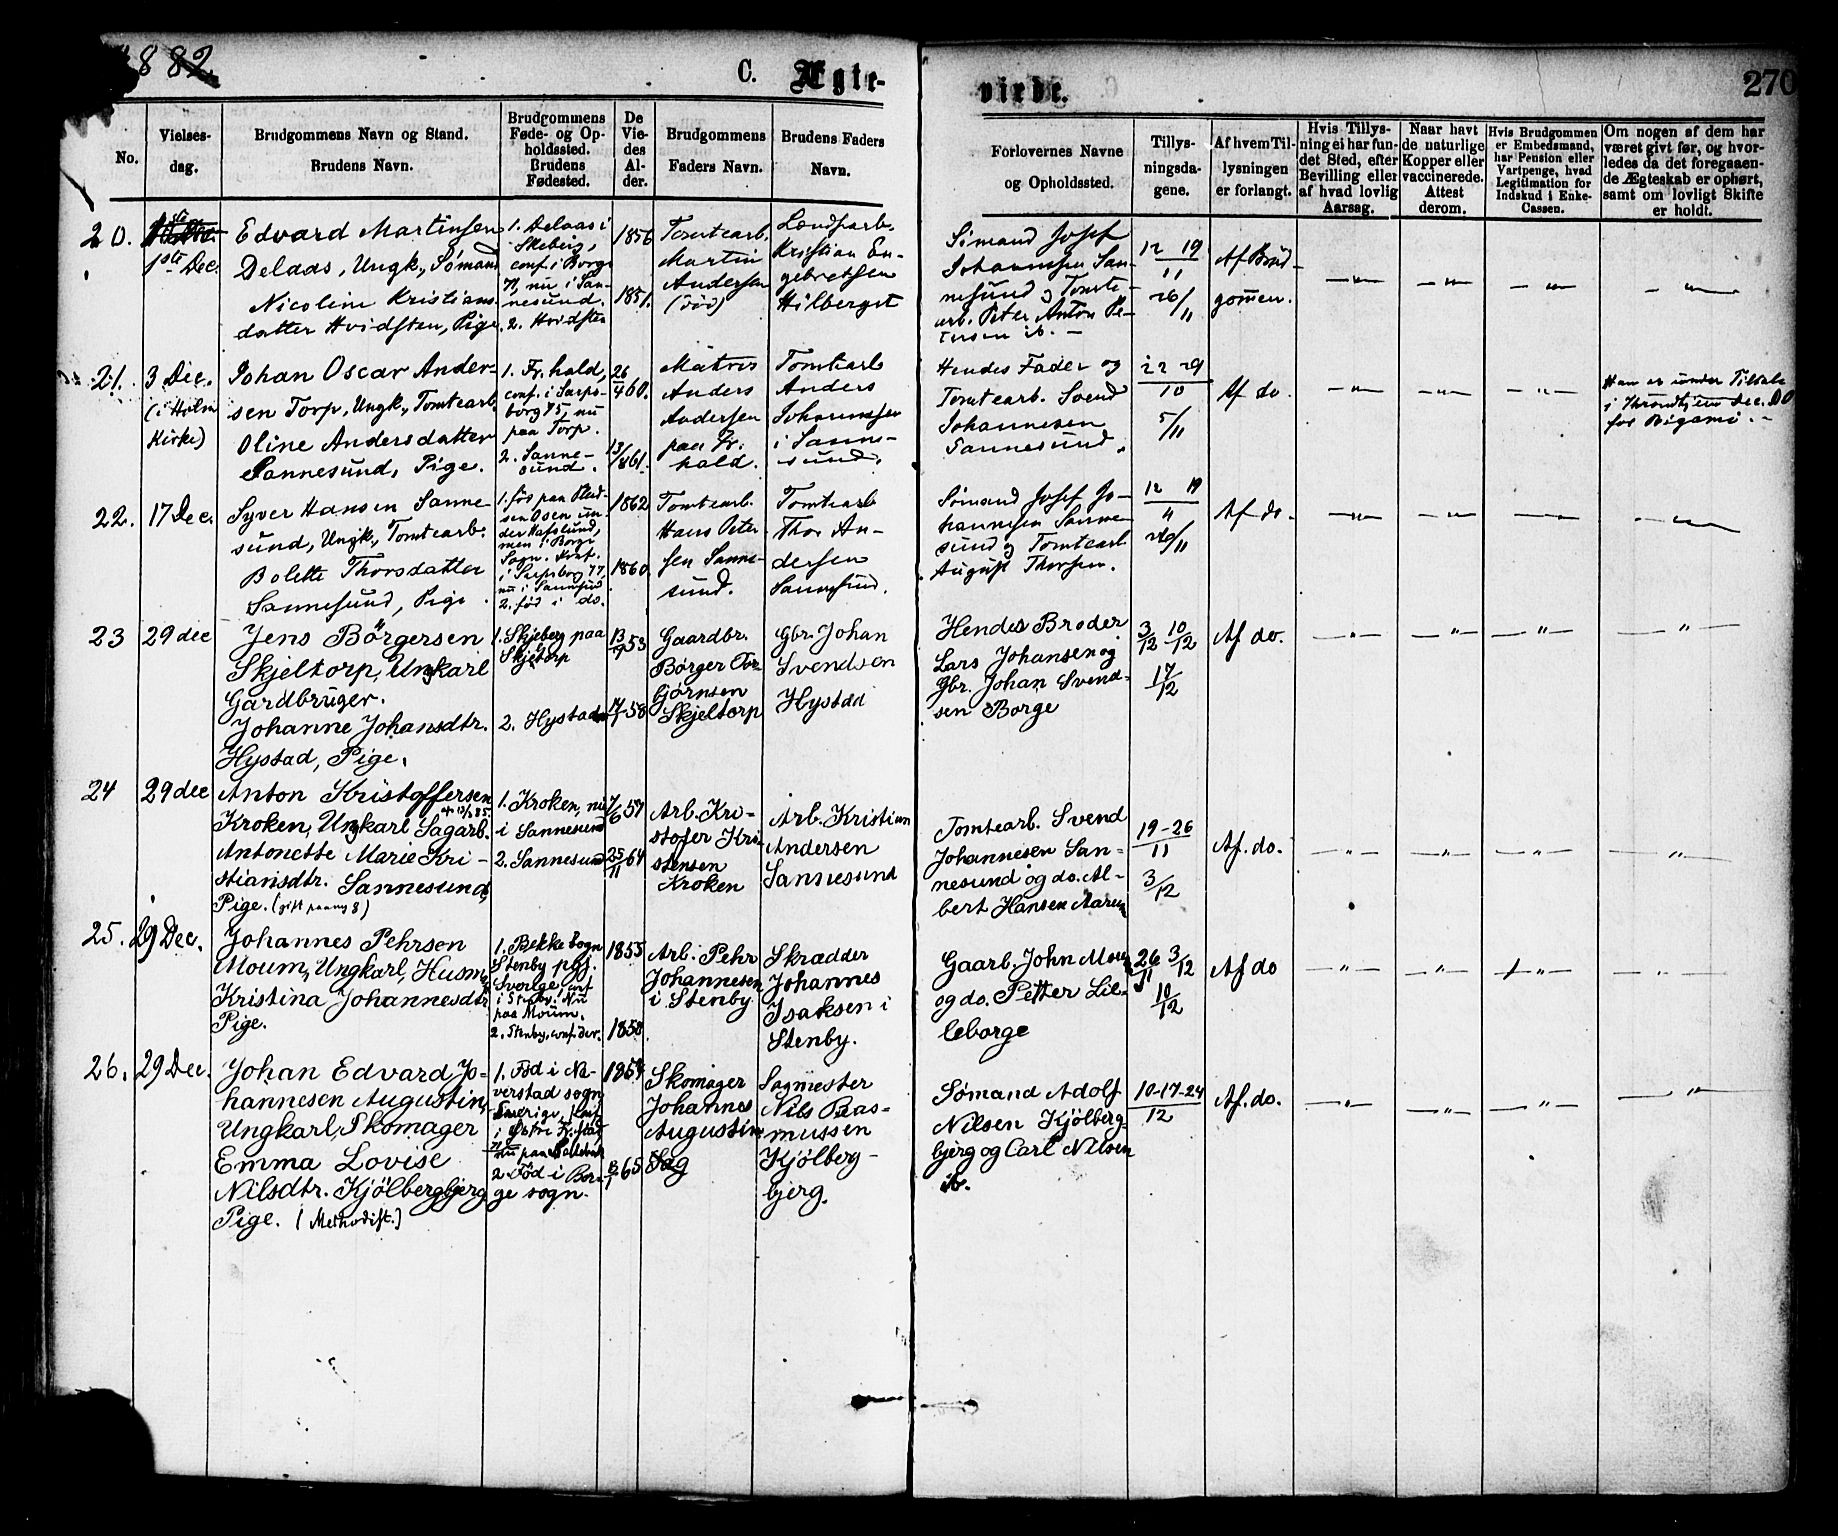 1882.
C. Ægte-
viede.
270
No.
Vielses-
dag.
Brudgommens Navn og Stand.
Brudens Navn.
Brudgommens
Føde- og Op-
holdssted.
Brudens
Fødested.
De
Vie-
des
Al-
der.
Brudgommens
Faders Navn.
Brudens Faders
Navn.
Forlovernes Navne
og Opholdssted.
Tillys-
ningsda-
gene.
Af hvem Til-
lysningen
er forlangt.
Hvis Tillys-
ning ei har fun-
det Sted, efter
Bevilling eller
af hvad lovlig
Aarsag.
Naar havt
de naturlige
Kopper eller
vaccinerede.
Attest
derom.
Hvis Brudgommen
er Embedsmand,
har Pension eller
Vartpenge, hvad
Legitimation for
Indskud i Enke-
Cassen.
Om nogen af dem har
været givt før, og hvor-
ledes da det foregaaen-
de Ægteskab er ophørt,
samt om lovligt Skifte
er holdt.
20.
1ste Dec.
Edvard Martinsen
Delaas, Ungk., Sømand
Nicoline Kristians-
datter Hvidsten, Pige.
1. Delaas i
Skebeis,
conf. i Borge
71, nu i San-
nesund.
2. Hvidsten
1856
1851.
Tomtearb.
Martin
Andersen
(død)
Landarb.
Kristian En-
gebretsen
Hilberget
Sømand Josef
Johannesen San-
nesund og Tomte-
arb. Peter Anton Pe-
tersen ib. —
12 19
11
26/11
Af Brud-
gommen.
— " —
— " —
— " —
— " —
21.
3 Dec.
(i Holm
Kirke)
Johan Oscar Ander-
sen Torp, Ungk., Tomtearb.
Oline Andersdatter
Sannesund, Pige.
1. Fr.hald,
conf. i Sarps-
borg 75, nu
paa Torp.
2. Sanne-
sund.
26/4 60.
13/8 61.
Matros
Anders
Andersen
paa Fr.
hald.
Tomtearb
Anders
Johannesen
i Sanne-
sund.
Hendes Fader og
Tomtearb. Svend
Johannesen
Sannesund.
22 29
10
5/11
Af do.
— " —
— " —
— " —
Han er under Tiltale
i Throndhjem Dec. 90
for Bigami. —
22.
17 Dec.
Syver Hansen Sanne-
sund, Ungk., Tomtearb.
Bolette Thorsdatter
Sannesund, Pige.
1. føs paa
sen Osen un-
der Hafslund,
men i Borge
Sogn. Konf.
i Sarpsborg 77,
nu i Sannesund
2. født i do.
1862
1860.
Tomtearb.
Hans Peter-
sen Sanne-
sund.
Tomtearb
Thor An-
dersen
Sannesund.
Sømand Josef Jo-
hannesen Sanne-
sund og Tomtearb
August Thorsen.
12 19
11
26/11
Af do.
— " —
— " —
— " —
— " —
23
29 dec
Jens Börgersen
Skjeltorp, Ungkarl
Gardbruger.
Johanne Johansdtr.
Hystad, Pige.
1. Skjeberg paa
Skjeltorp
2. Hystad
13/9 53
17/1 58
Gaardbr.
Børger Tor-
bjørnsen
Skjeltorp
Gbr. Johan
Svendsen
Hystad
Hendes Broder
Lars Johansen og
Gbr. Johan Svend-
sen Borge
3/12 10/12
17/12
Af do.
— " —
— " —
— " —
— " —
24
29 dec
Anton Kristoffersen
Kroken, Ungkarl Sagarb.
Antonette Marie Kri-
stiansdtr. Sannesund,
Pige. (gift paany 8)
1. Kroken, nu
i Sannesund
2. Sannesund
7/6 57
25/11 64
Arb. Kri-
stofer Kri-
stensen
Kroken
Arb. Kristian
Andersen
Sannesund
Tomtearb. Svend
Johannesen San-
nesund og do. Al-
bert Hansen Aarum
19-26
11
3/12
Af. do.
— " —
— " —
— " —
— " —
25.
29 Dec.
Johannes Pehrsen
Moum, Ungkarl, Husm.
Kristina Johannesdtr.
Pige.
1. Bekke Sogn
Stenby pgj.
Sverige, conf
i Stenby. Nu
paa Moum.
2. Stenby, conf. der.
1855
1858.
Arb. Pehr
Johannesen
i Stenby
Skrædder
Johannes
Isaksen i
Stenby.
Gaarb. John Moum
og do. Petter Lil-
leborge
26/11 3/12
10/12
Af do
— " —
— " —
— " —
— " —
26.
29 Dec.
Johan Edvard Jo-
hannesen Augustin,
Ungkarl, Skomager
Emma Lovise
Nilsdtr. Kjölbergbjerg
Pige. (Methodist.)
1. Föd i Na-
verstad sogn
Sverige, Konf
i Østre Fr.stad
2. Föd i Bor-
ge sogn.
1859
13/1 65
Skomager
Johannes
Augustin
Sag
Sagmester
Nils Ras-
mussen
Kjölberg-
bjerg.
Sømand Adolf
Nilsen Kjölberg-
bjerg og Carl Nilsen
ib.
10-17-24
12
Af. do.
— " —
— " —
— " —
— " —